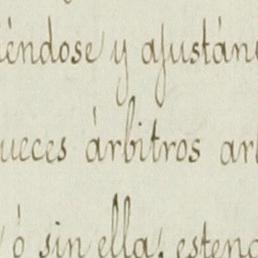 iéndose y ajustán
ueces árbitros ar
ó sin ella, esten